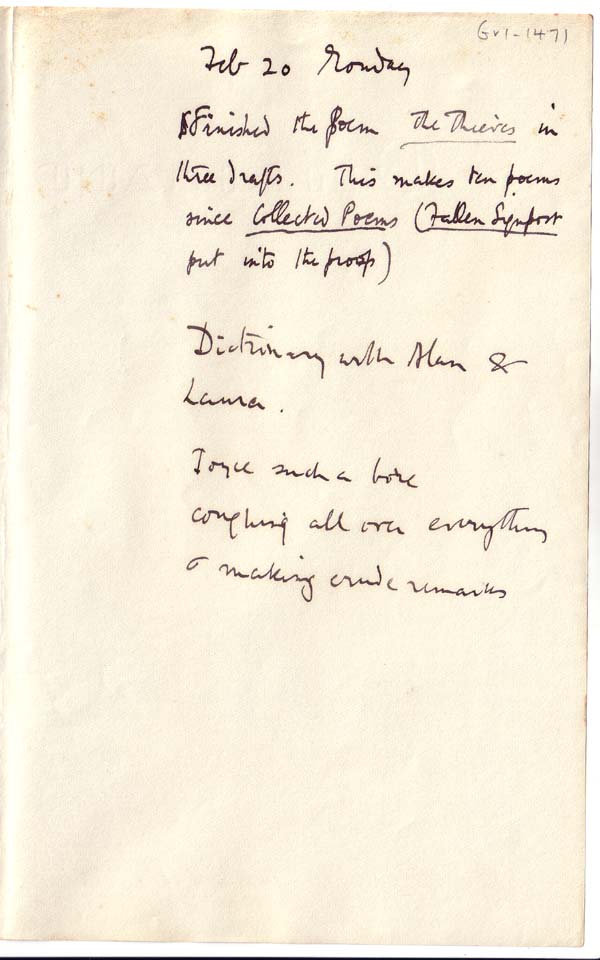 Gv1-1471
Feb 20 Monday
Finished the poem The Thieves in
three drafts. This makes ten poems
since Collected Poems (Fallen Signpost
put into the proofs)
Dictionary with Alan &
Laura.
Joyce such a bore
coughing all over everything
& making crude remarks